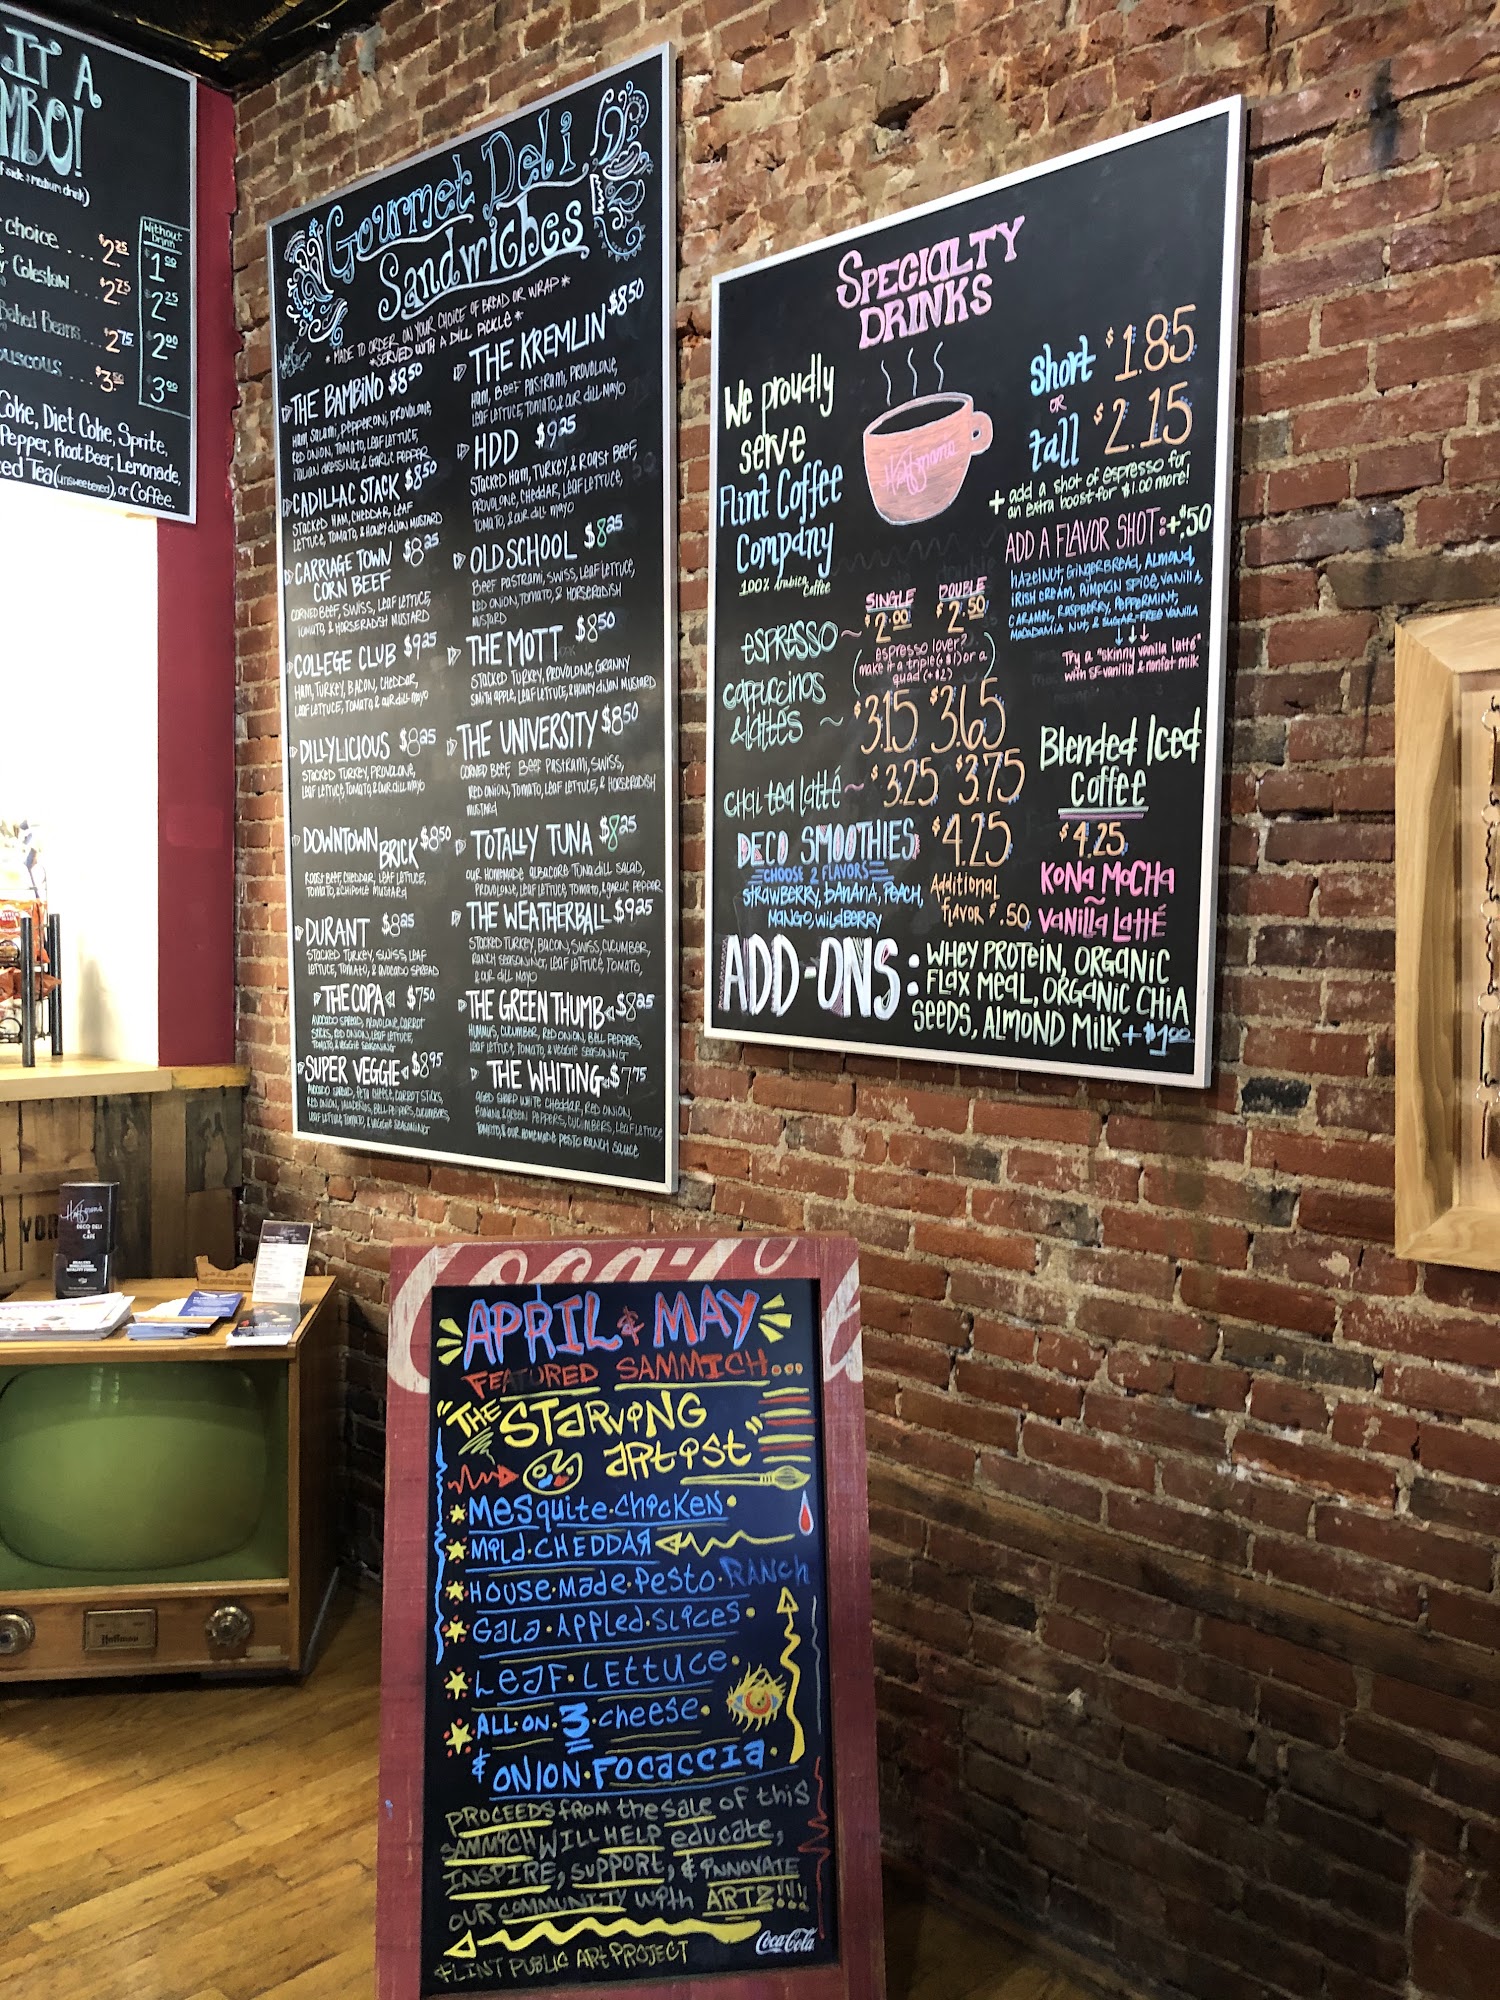 IT A
MBO!
side & medium drink)
choice . . . $2.25
Coleslaw . . . $2.75
Baked Beans . . . $2.75
ouscous . . . $3.50
Without
Drink
$1.50
2.25
2.00
3.00
Coke, Diet Coke, Sprite,
Pepper, Root Beer, Lemonade,
ced Tea (unsweetened), or Coffee.
Gourmet Deli
Sandwiches
*MADE TO ORDER ON YOUR CHOICE OF BREAD OR WRAP*
*SERVED WITH A DILL PICKLE*
THE BAMBINO $8.50
HAM, SALAMI, PEPPERONI, PROVOLONE,
RED ONION, TOMATO, LEAF LETTUCE,
ITALIAN DRESSING, & GARLIC PEPPER
CADILLAC STACK $8.50
STACKED HAM, CHEDDAR, LEAF
LETTUCE, TOMATO, & HONEY DIJON MUSTARD
CARRIAGE TOWN $8.25
CORN BEEF
CORNED BEEF, SWISS, LEAF LETTUCE,
TOMATO, & HORSERADISH MUSTARD
COLLEGE CLUB $9.25
HAM, TURKEY, BACON, CHEDDAR,
LEAF LETTUCE, TOMATO & OUR DILL MAYO
DILLYLICIOUS $8.25
STACKED TURKEY, PROVOLONE,
LEAF LETTUCE, TOMATO, & OUR DILL MAYO
DOWNTOWN BRICK $8.50
ROAST BEEF, CHEDDAR, LEAF LETTUCE,
TOMATO, & CHIPOTLE MUSTARD
DURANT $8.25
STACKED TURKEY, SWISS, LEAF
LETTUCE, TOMATO, & AVOCADO SPREAD
THE COPA $7.50
AVOCADO SPREAD, PROVOLONE, CARROT
STICKS, RED ONION, LEAF LETTUCE,
TOMATO, & VEGGIE SEASONING
SUPER VEGGIE $8.95
AVOCADO SPREAD, FETA CHEESE, CARROT STICKS,
RED ONION, BELL PEPPERS, CUCUMBERS,
LEAF LETTUCE, TOMATO, & VEGGIE SEASONING
THE KREMLIN $8.50
HAM, BEEF PASTRAMI, PROVOLONE,
LEAF LETTUCE, TOMATO, & OUR DILL MAYO
HDD $9.25
STACKED HAM, TURKEY, & ROAST BEEF,
PROVOLONE, CHEDDAR, LEAF LETTUCE,
TOMATO, & OUR DILL MAYO
OLD SCHOOL $8.25
BEEF PASTRAMI, SWISS, LEAF LETTUCE,
RED ONION, TOMATO, & HORSERADISH
MUSTARD
THE MOTT $8.50
STACKED TURKEY, PROVOLONE, GRANNY
SMITH APPLE, LEAF LETTUCE, & HONEY DIJON MUSTARD
THE UNIVERSITY $8.50
CORNED BEEF, BEEF PASTRAMI, SWISS,
RED ONION, TOMATO, LEAF LETTUCE, & HORSERADISH
MUSTARD
TOTALLY TUNA $8.25
OUR HOMEMADE ALBACORE TUNA DILL SALAD,
PROVOLONE, LEAF LETTUCE, TOMATO, & GARLIC PEPPER
THE WEATHERBALL $9.25
STACKED TURKEY, BACON, SWISS, CUCUMBER,
RANCH SEASONING, LEAF LETTUCE, TOMATO,
& OUR DILL MAYO
THE GREEN THUMB $8.25
HUMMUS, CUCUMBER, RED ONION, BELL PEPPERS,
LEAF LETTUCE, TOMATO, & VEGGIE SEASONING
THE WHITING $7.75
AGED SHARP WHITE CHEDDAR, RED ONION,
BANANA & GREEN PEPPERS, CUCUMBERS, LEAF LETTUCE,
TOMATO, & OUR HOMEMADE PESTO RANCH SAUCE
SPECIALTY
DRINKS
We proudly
serve
Flint Coffee
Company
100% Arabica
Coffee
Hoffman's
short $1.85
OR
tall $2.15
+ add a shot of espresso for
an extra boost for $1.00 more!
ADD A FLAVOR SHOT: +$.50
HAZELNUT, GINGERBREAD, ALMOND,
IRISH CREAM, PUMPKIN SPICE, VANILLA,
CARAMEL, RASPBERRY, PEPPERMINT,
MACADAMIA NUT, & SUGAR-FREE VANILLA
Try a "skinny vanilla latté"
with SF vanilla & nonfat milk
SINGLE DOUBLE
ESPRESSO ~ $2.00 $2.50
(espresso lover?
make it a triple (+$1) or a
quad (+$2))
cappuccinos
& lattés ~ $3.15 $3.65
CHAI tea latté ~ $3.25 $3.75
DECO SMOOTHIES $4.25
CHOOSE 2 FLAVORS
STRAWBERRY, BANANA, PEACH,
MANGO, WILDBERRY
Additional
flavor $.50
Blended Iced
Coffee
$4.25
KONA MOCHA
~
VANILLA LATTÉ
ADD-ONS: WHEY PROTEIN, ORGANIC
FLAX MEAL, ORGANIC CHIA
SEEDS, ALMOND MILK + $1.00
YOR
Hoffman's
DECO DELI
& CAFE
Hoffman
Coca-Co
APRIL & MAY
FEATURED SAMMICH...
"THE STARVING
ARTIST"
MESQUITE·CHICKEN·
MILD·CHEDDAR
HOUSE·MADE·PESTO·RANCH
GALA·APPLED·SLICES·
LEAF·LETTUCE·
ALL·ON·3·CHEESE·
& ONION·FOCACCIA·
PROCEEDS from the SALE of this
SAMMICH WILL HELP educate,
INSPIRE, SUPPORT, & INNOVATE
OUR COMMUNITY with ARTZ!!!!
FLINT PUBLIC ART PROJECT
Coca-Cola